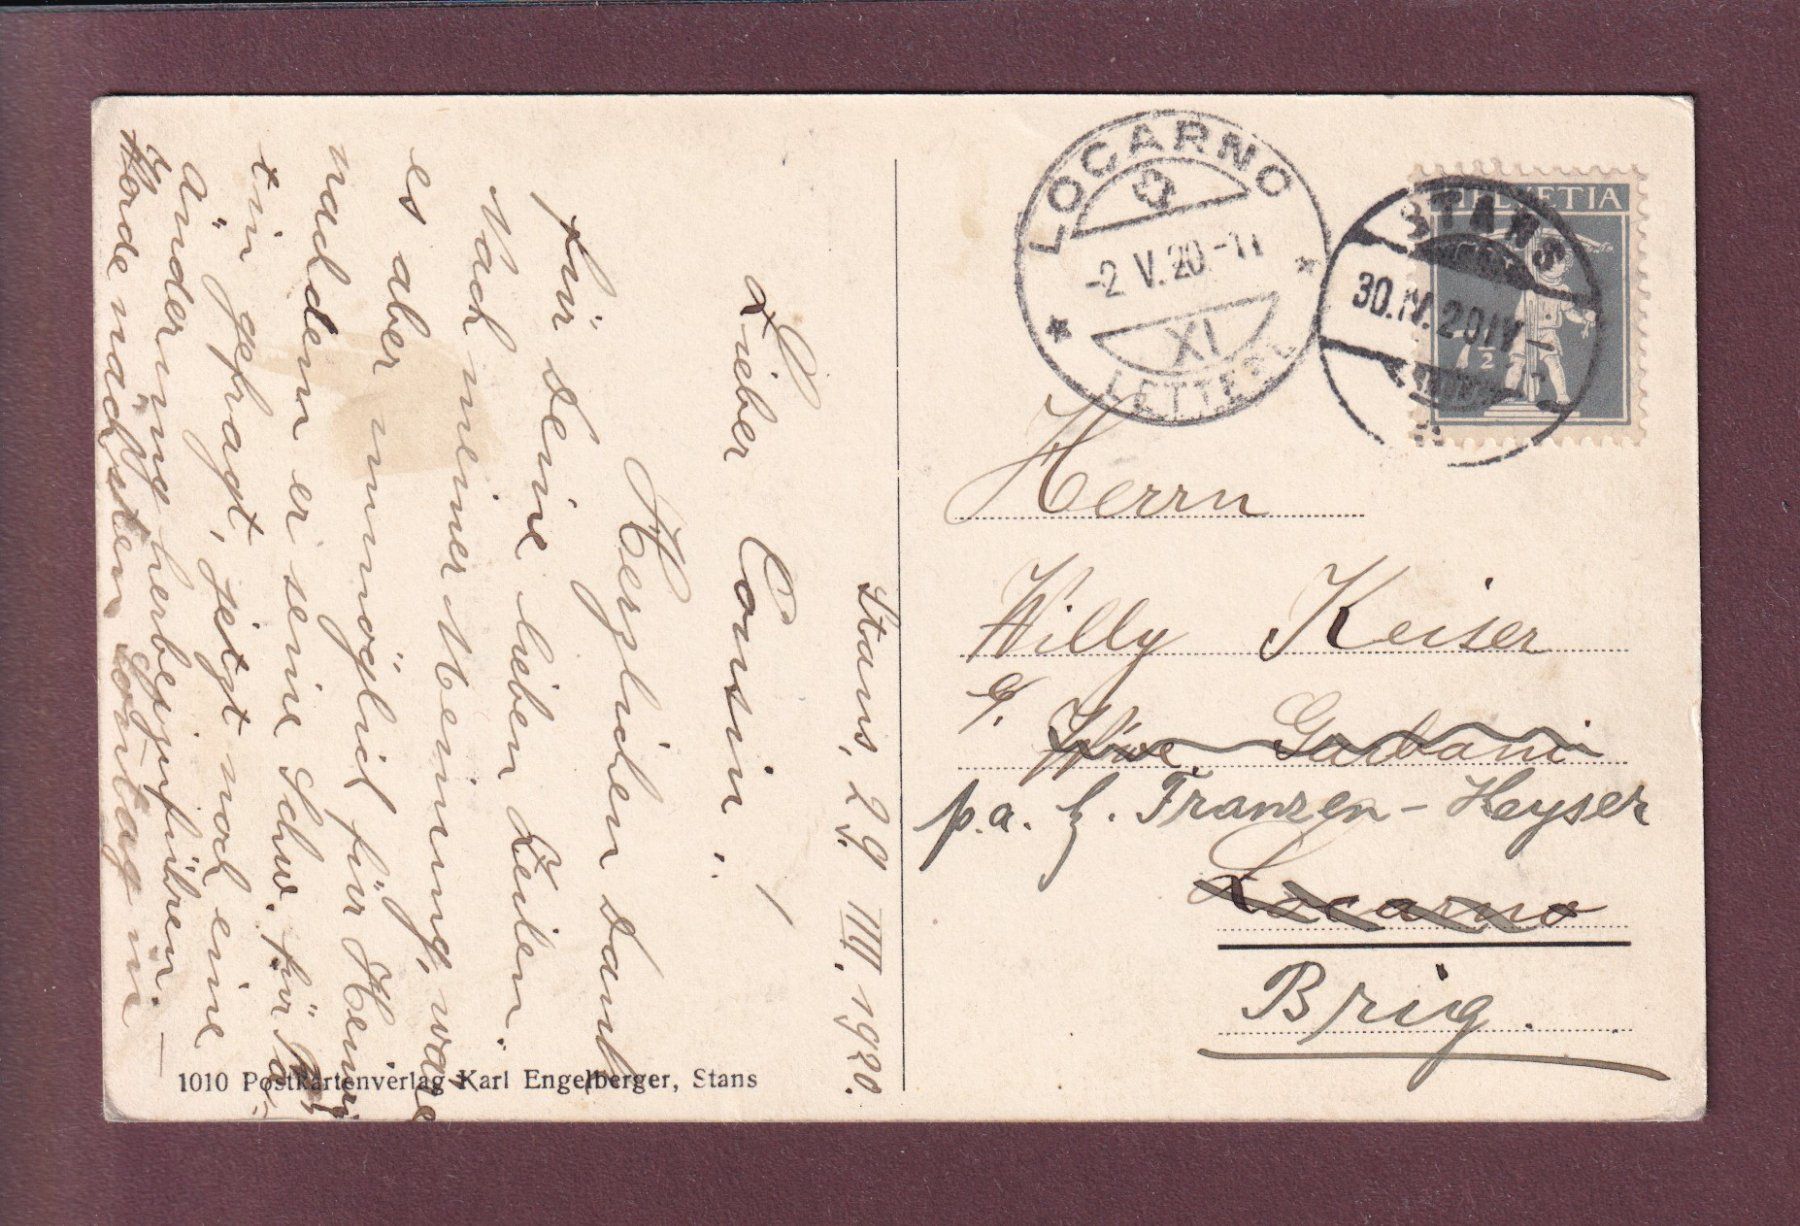 Stans, 29. IIII. 1920.
Lieber Cousin!
Herzlichen Dank
für Deine lieben Zeilen.
Nach meiner Meinung, wäre
es aber unmöglich für Heini
nachdem er seine Schw. für
tin gefragt, jetzt noch eine
Änderung herbeizuführen. –
Werde nächsten Sontag in
1010 Postkartenverlag Karl Engelberger, Stans
LOCARNO
-2 V. 20.-11
XI
LETTERE
HELVETIA
7½
STANS
30.IV.20 IV-
Herrn
Willy Keiser
Wwe Garbani
p.a. Franzen-Heyser
Locarno
Brig.